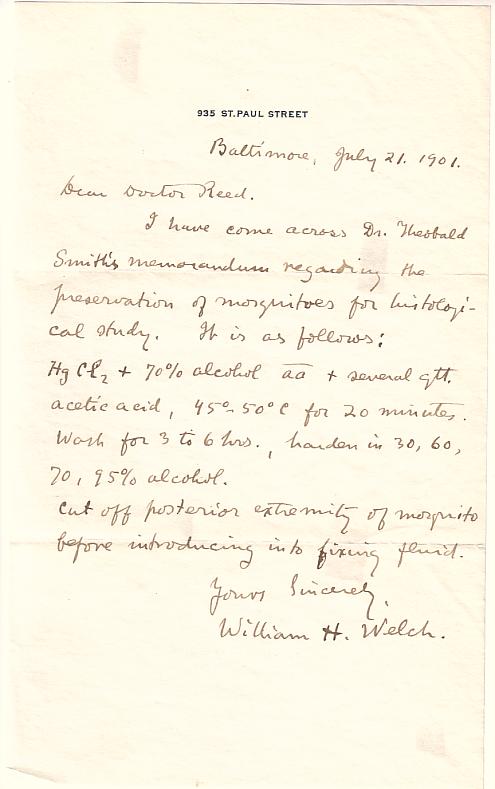 935 ST. PAUL STREET
Baltimore, July 21. 1901.
Dear Doctor Reed.
I have come across Dr. Theobald
Smith's memorandum regarding the
preservation of mosquitoes for histologi-
cal study. It is as follows:
HgCl₂ + 70% alcohol āā + several gtt.
acetic acid, 45°-50°C for 20 minutes.
Wash for 3 to 6 hrs., harden in 30, 60,
70, 95% alcohol.
Cut off posterior extremity of mosquito
before introducing into fixing fluid.
Yours Sincerely,
William H. Welch.